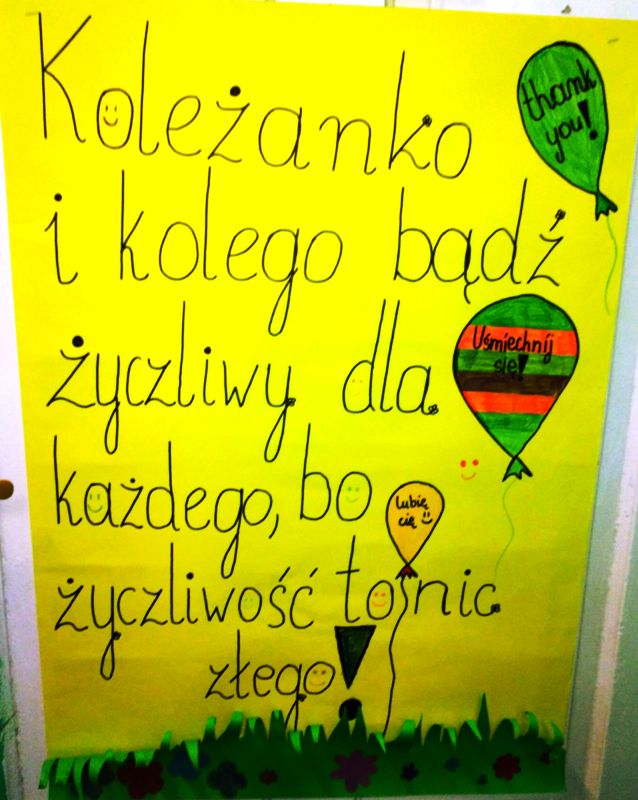 Koleżanko
i kolego bądź
życzliwy dla
każdego, bo
życzliwość to nic
złego!
thank
you!
Uśmiechnij
się!
lubię
cię